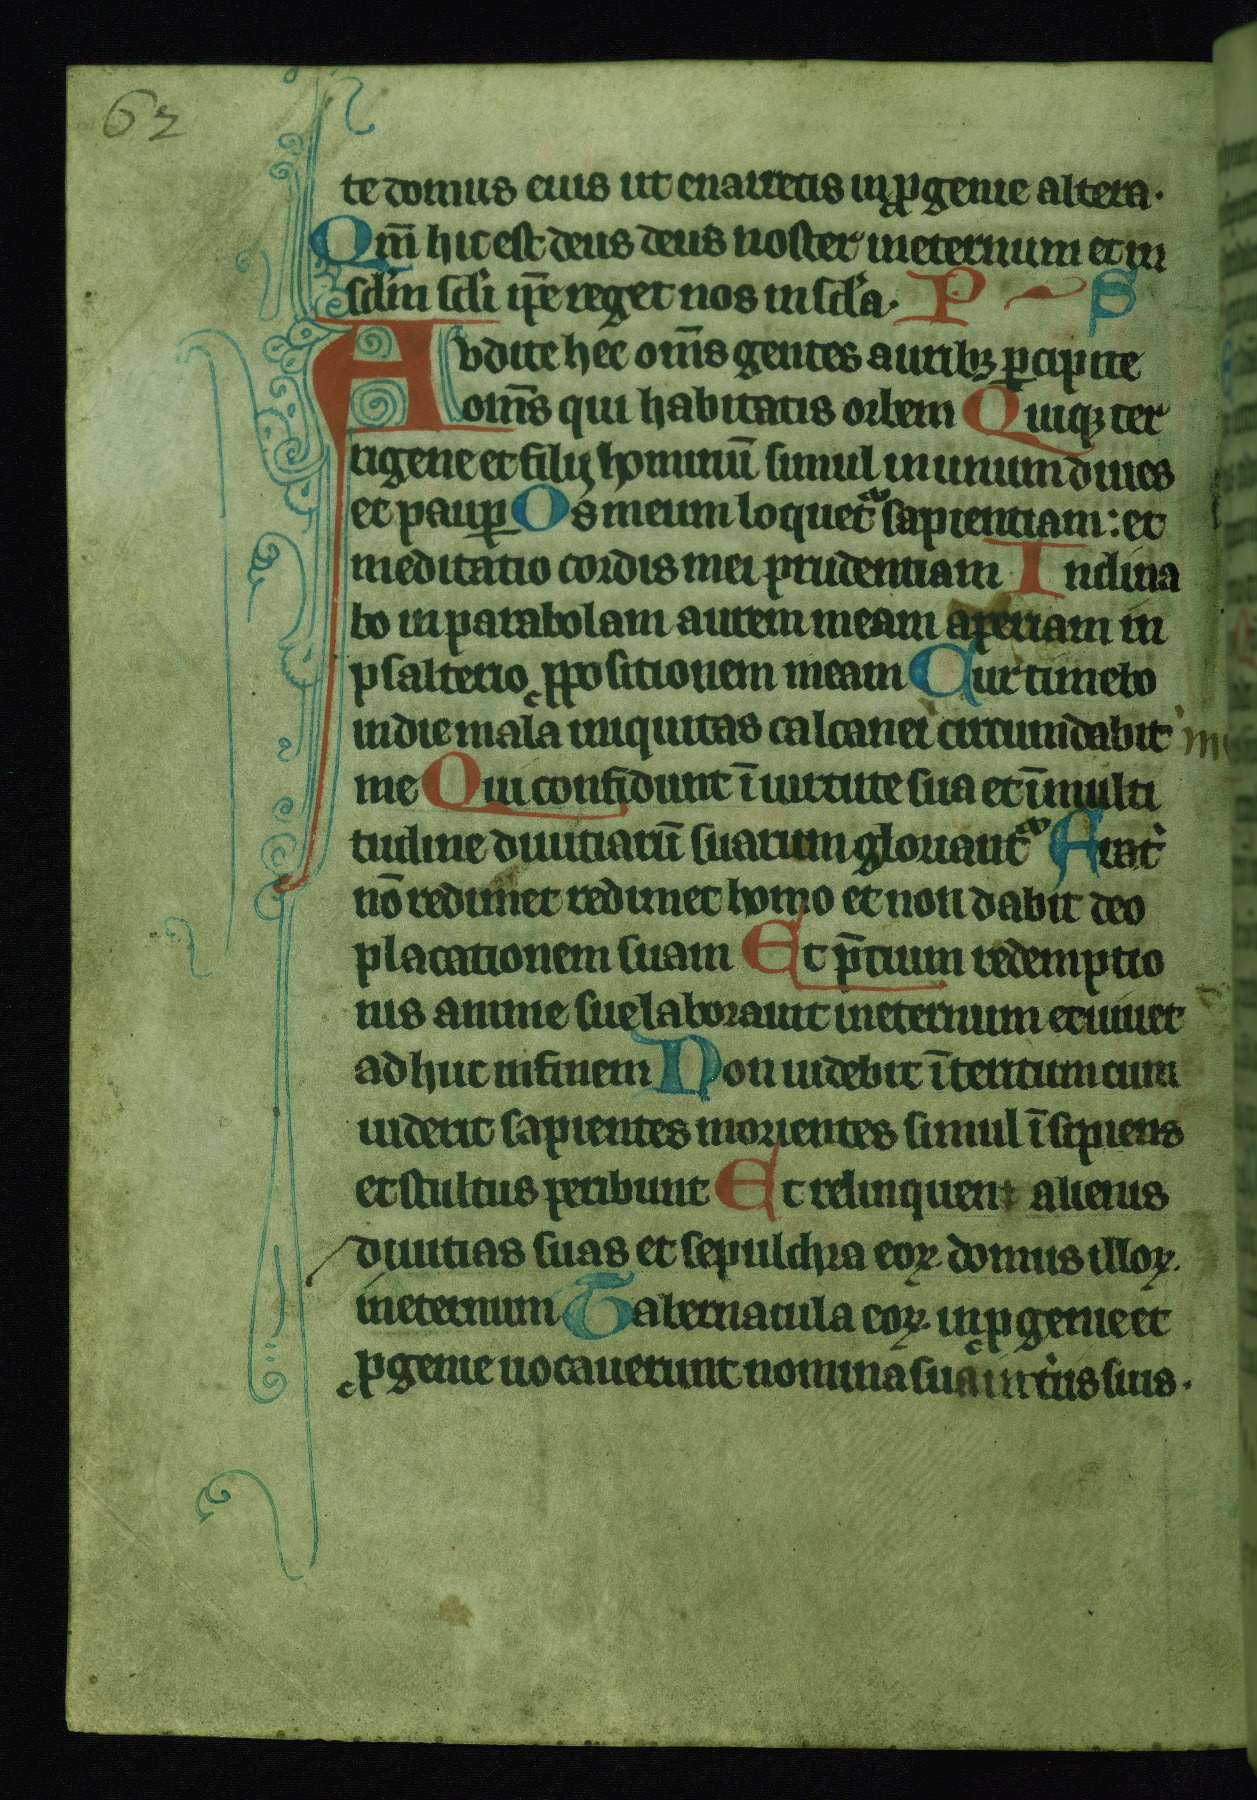 62
te domus eius ut enarretis in ꝓgenie altera·
Qm̄ hic est deus deus noster in eternum et in
sclm scli ip̄e reget nos in scla· P S
Avdite hec om̄s gentes auribꝫ ꝑcipite
om̄s qui habitatis orbem Quiqꝫ ter
rigene et filij hominū simul in unum diues
et paup̱ Os meum loquet᷑ sapientiam: et
meditatio cordis mei prudentiam Inclina
bo in parabolam aurem meam aperiam in
psalterio ꝓpositionem meam Cur timebo
in die mala iniquitas calcanei circumdabit
me Qui confidunt ī uirtute sua et ī multi
tudine diuitiarū suarum gloriant᷑ Frat᷑
nō redimet redimet homo et non dabit deo
placationem suam Et p̄cium redemptio
nis anime sue laborauit in eternum et uiuet
ad huc in finem Non uidebit īteritum cum
uiderit sapientes morientes simul īsipiens
et stultus peribunt Et relinquent alienis
diuitias suas et sepulchra eoꝝ domus illoꝝ
in eternum Tabernacula eoꝝ in ꝓgenie et
ꝓgenie uocauerunt nomina sua in tr̄is suis·